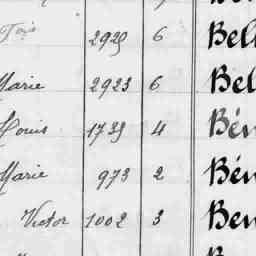 2929 6 Bell
Marie 2923 6 Bel
Louis 1739 4 Bén
Marie 973 2 Bén
Victor 1002 3 Ben